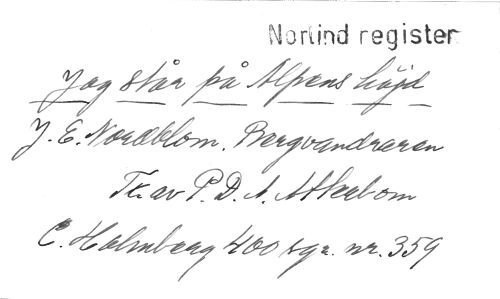 Norlind register
Jag står på Alpens höjd
J. E. Nordblom. Bergvandraren
Tr. av P. D. A. Atterbom
C. Holmberg 400 sgr. nr. 359